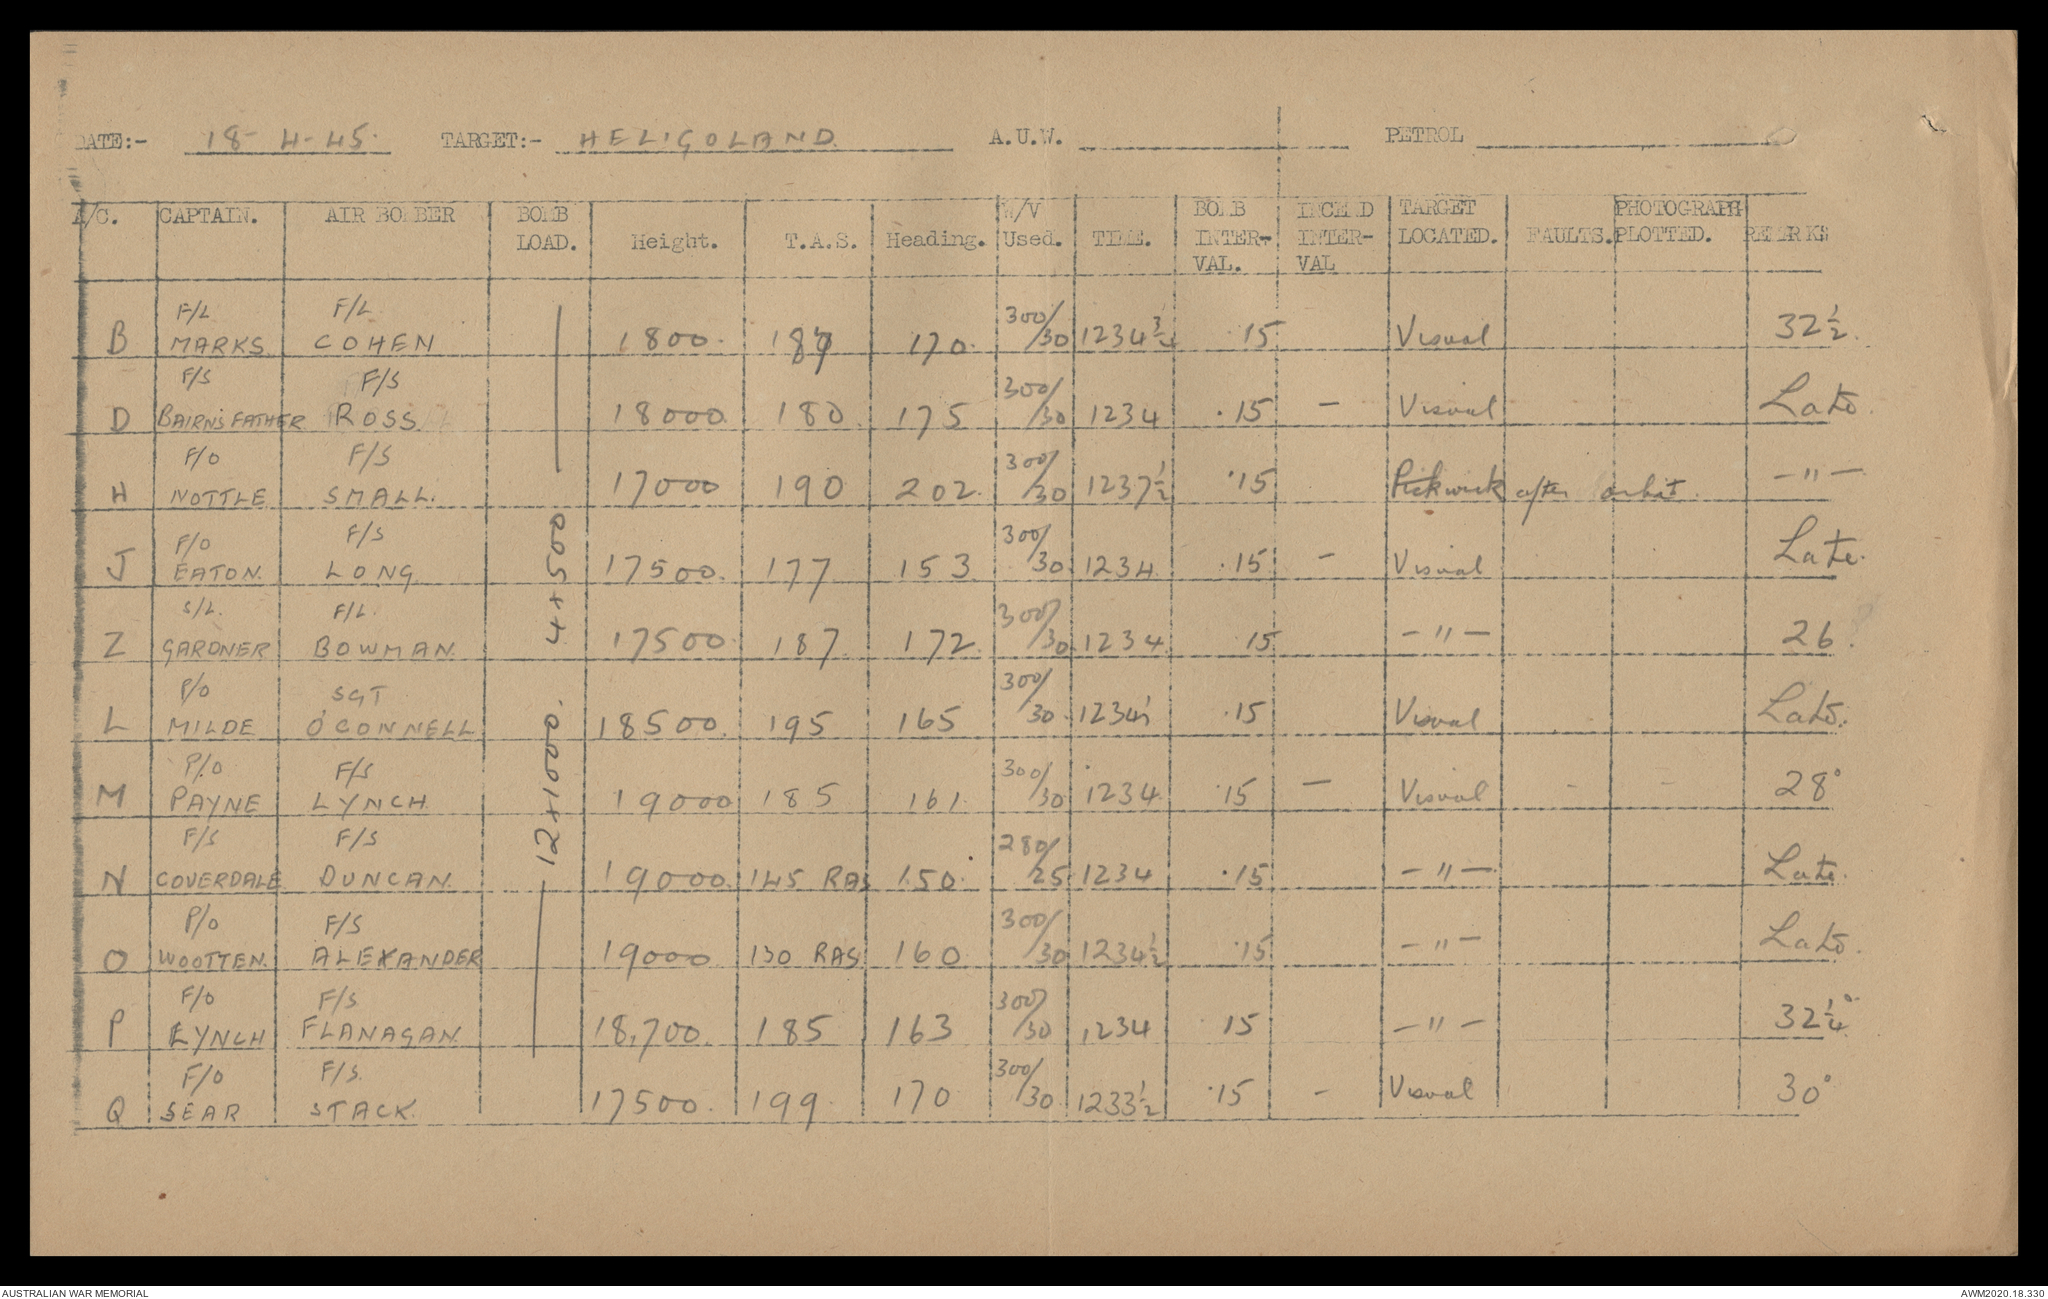 DATE:- 18-4-45. TARGET:- HELIGOLAND. A.U.W. PETROL
A/C. CAPTAIN. AIR BOMBER BOMB LOAD. Height. T.A.S. Heading. W/V Used. TIME. BOMB INTER-VAL. INCEND INTER-VAL TARGET LOCATED. FAULTS. PHOTOGRAPH PLOTTED. REMARKS
12 x 1000. 4 x 500
B F/L MARKS F/L COHEN 1800. 187 170. 300/30 1234 3/4 15 Visual 32 1/2.
D F/S BAIRNSFATHER F/S ROSS. 18000. 180 175 300/30 1234 .15 - Visual Late.
H F/O NOTTLE F/S SMALL. 17000 190 202. 300/30 1237 1/2 .15 Pickwick after orbit. -"-
J F/O EATON. F/S LONG 17500. 177 153 300/30 1234 .15 - Visual Late.
Z S/L. GARDNER F/L. BOWMAN. 17500. 187 172 300/30 1234 15 -"- 26
L P/O MILDE SGT O'CONNELL 18500. 195 165 300/30 1234 .15 Visual Late.
M P/O PAYNE F/S LYNCH 19000 185 161 300/30 1234 .15 - Visual - - 28°
N F/S COVERDALE F/S DUNCAN. 19000. 145 RAS 150. 280/25 1234 .15 -"- Late.
O P/O WOOTTEN. F/S ALEXANDER 19000 130 RAS 160 300/30 1234 1/2 .15 -"- Late.
P F/O LYNCH F/S FLANAGAN. 18,700. 185 163 300/30 1234 15 -"- 32 1/4°
Q F/O SEAR F/S. STACK. 17500. 199. 170 300/30 1233 1/2 .15 - Visual 30°
AUSTRALIAN WAR MEMORIAL AWM2020.18.330